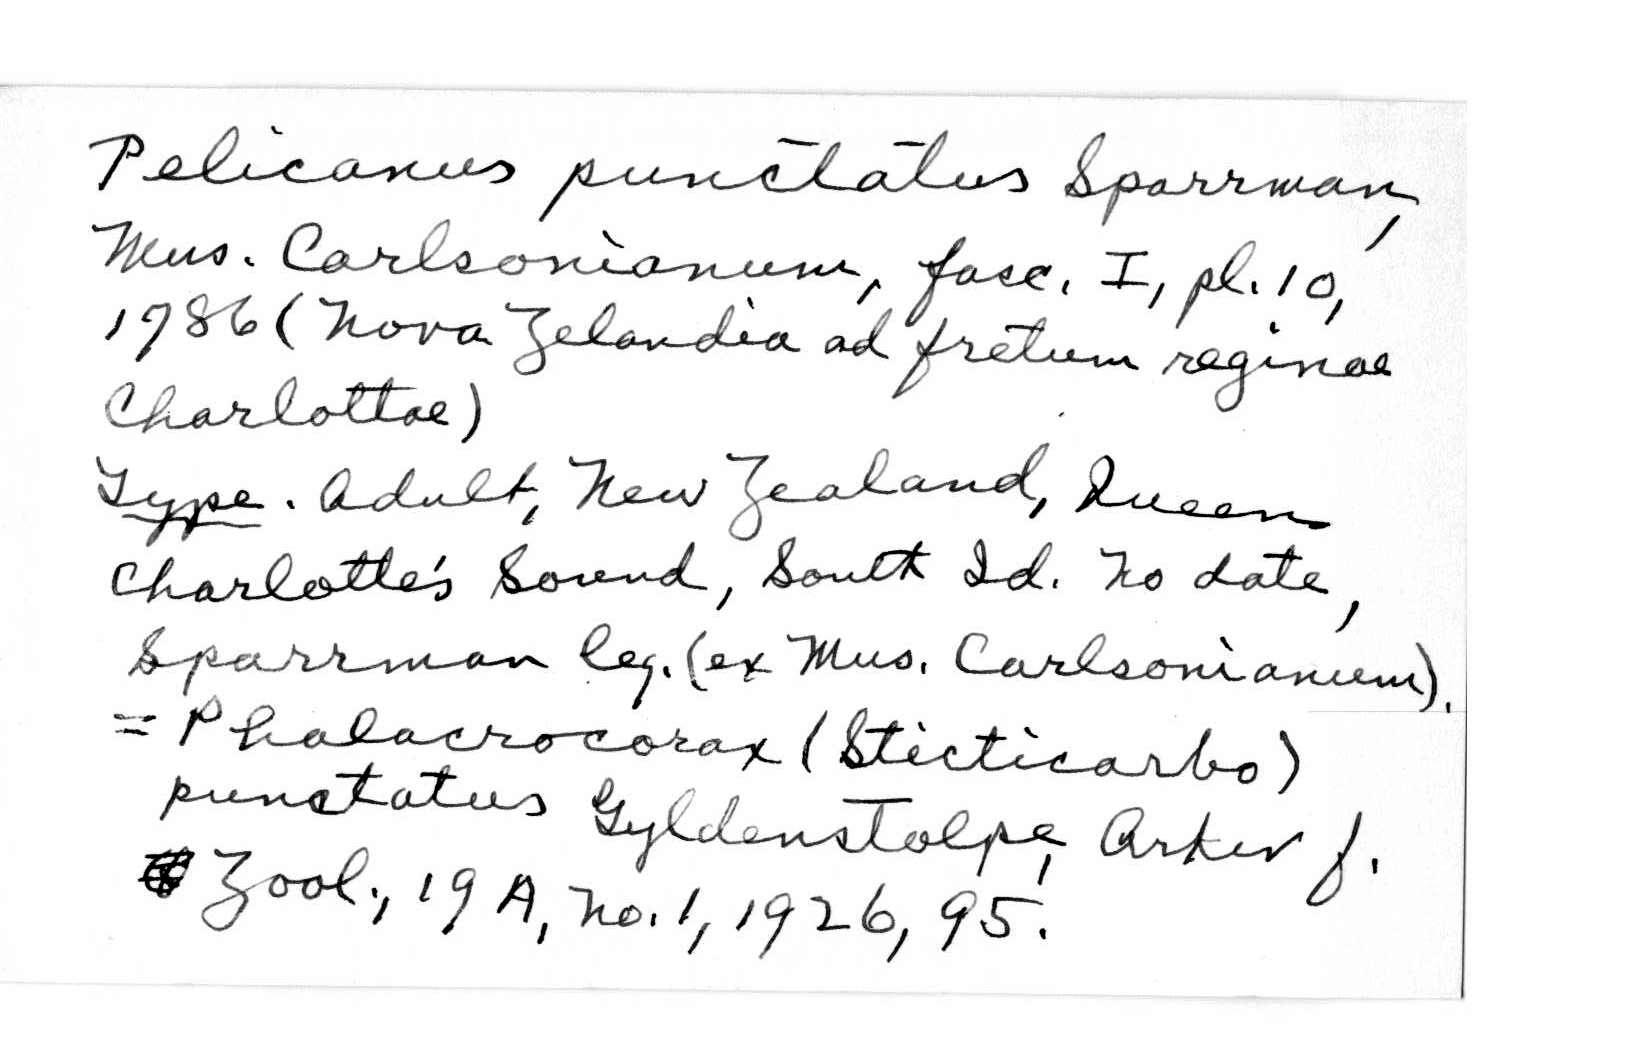 Pelicanus punctatus Sparrman,
Mus. Carlsonianum, fasc. I, pl. 10,
1786 (Nova Zelandia ad fretum reginae
Charlottae)
Type. Adult, New Zealand, Queen
Charlotte's Sound, South Id. No date,
Sparrman leg. (ex Mus. Carlsonianum).
= Phalacrocorax (Sticticarbo)
punctatus Gyldenstolpe, Arkiv f.
Zool., 19A, No. 1, 1926, 95.